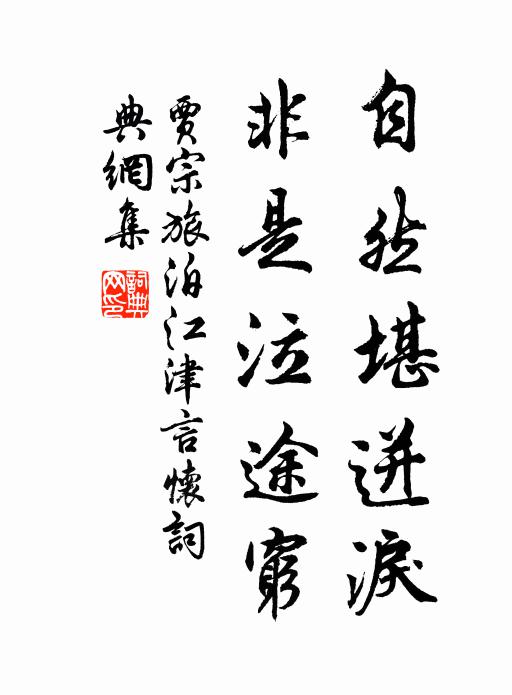 自然堪迸淚
非是泣途窮
賈宗旅泊江津言懷詞
典網集
詞典網印